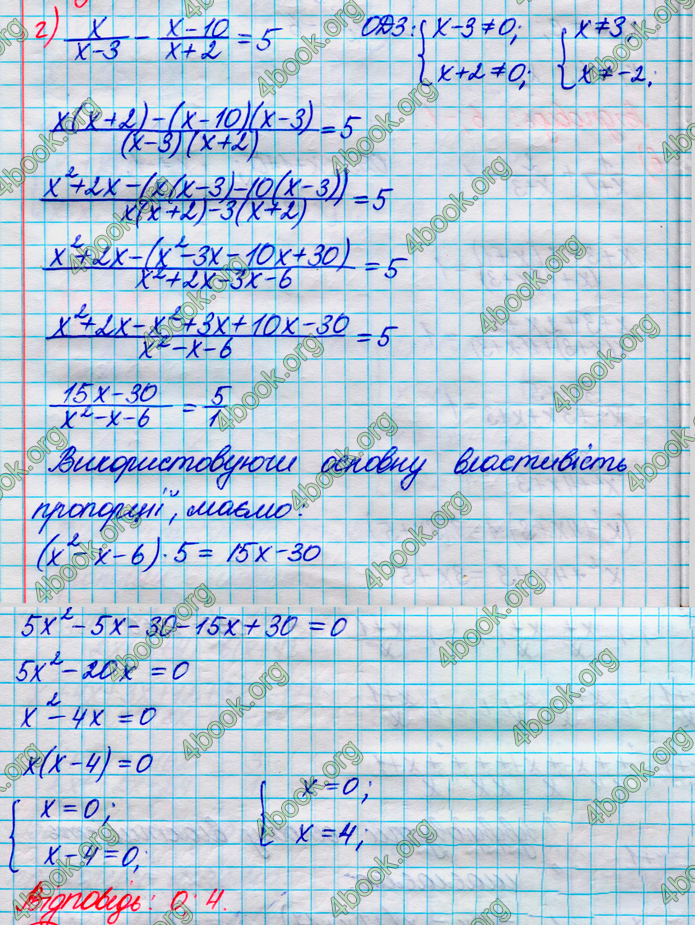 г) x/(x-3) - (x-10)/(x+2) = 5   ОДЗ: { x-3≠0; x+2≠0; { x≠3; x≠-2;
(x(x+2)-(x-10)(x-3))/((x-3)(x+2)) = 5
(x²+2x-(x(x-3)-10(x-3)))/(x(x+2)-3(x+2)) = 5
(x²+2x-(x²-3x-10x+30))/(x²+2x-3x-6) = 5
(x²+2x-x²+3x+10x-30)/(x²-x-6) = 5
(15x-30)/(x²-x-6) = 5/1
Використовуючи основну властивість
пропорції, маємо:
(x²-x-6)·5 = 15x-30
5x²-5x-30-15x+30 = 0
5x²-20x = 0
x²-4x = 0
x(x-4) = 0
{ x=0; x-4=0; { x=0; x=4;
Відповідь: 0; 4.
4book.org